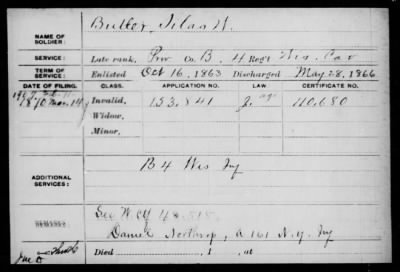 NAME OF SOLDIER: Butler, Silas W.
SERVICE: Late rank, Priv Co. B, 4 Reg't Wis. Cav
TERM OF SERVICE: Enlisted Oct 16, 1863 Discharged May 28, 1866
DATE OF FILING. CLASS. APPLICATION NO. LAW CERTIFICATE NO.
1870 Invalid, 153,841 110,680
Widow,
Minor,
B 4 Wis Inf
ADDITIONAL SERVICES:
REMARKS:
See W Cf
Daniel Northrop, A 161 N.Y. Inf
Died , 1 , at